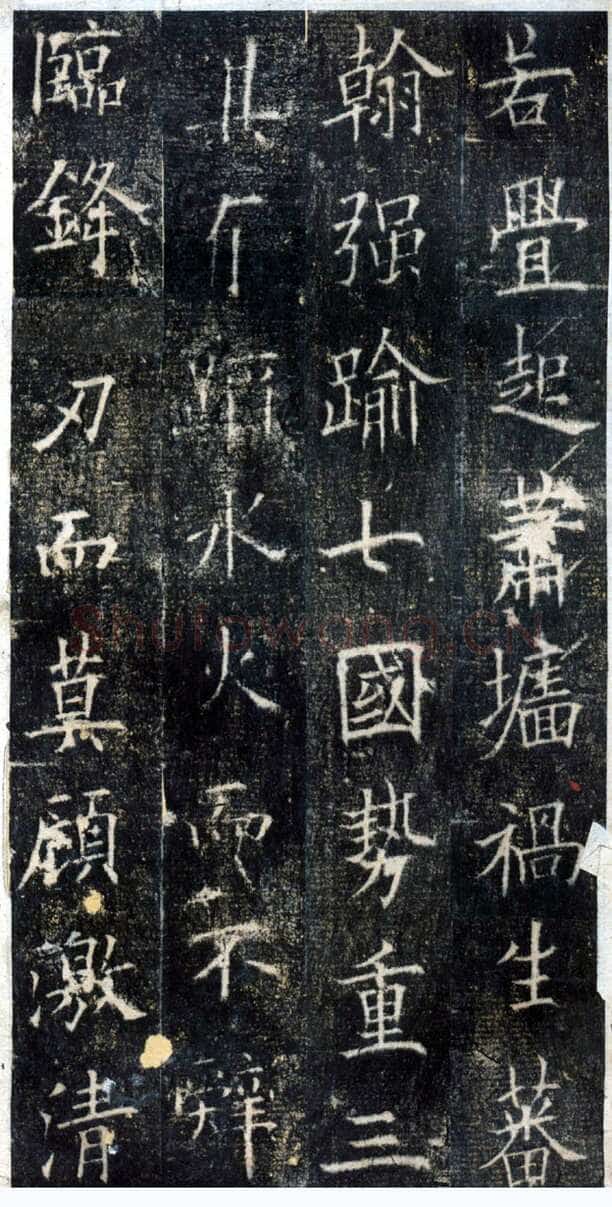 若舋起蕭墻禍生蕃
翰强踰七國勢重三
水火而不辭
臨鋒刃而莫顧激清
Shufawang.CN